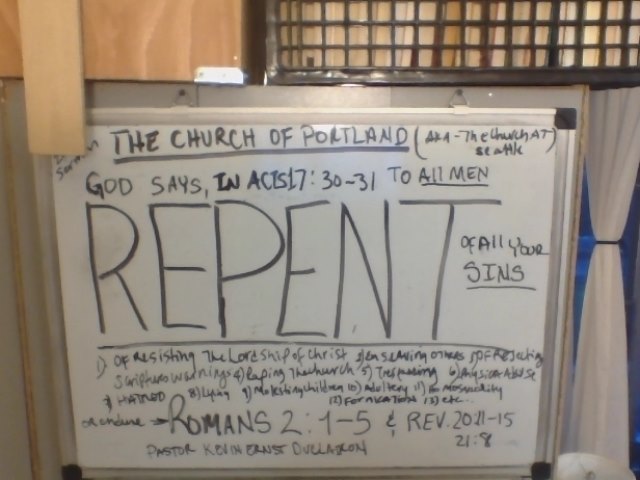 THE CHURCH OF PORTLAND (AKA-The Church AT)
Seattle
GOD SAYS, IN ACTS 17:30-31 TO All MEN
REPENT
OF All YOUR
SINS
1) OF Resisting The Lordship of Christ 2) enslaving others 3) OF Rejecting
Scriptures warnings 4) Raping The church 5) Trespassing 6) Physical Abuse
7) HATRED 8) Lying 9) Molesting children 10) Adultery 11) Homosexuality
12) Fornication 13) etc...
or endure → ROMANS 2:1-5 & REV. 20:11-15
21:8
PASTOR KEVIN ERNST